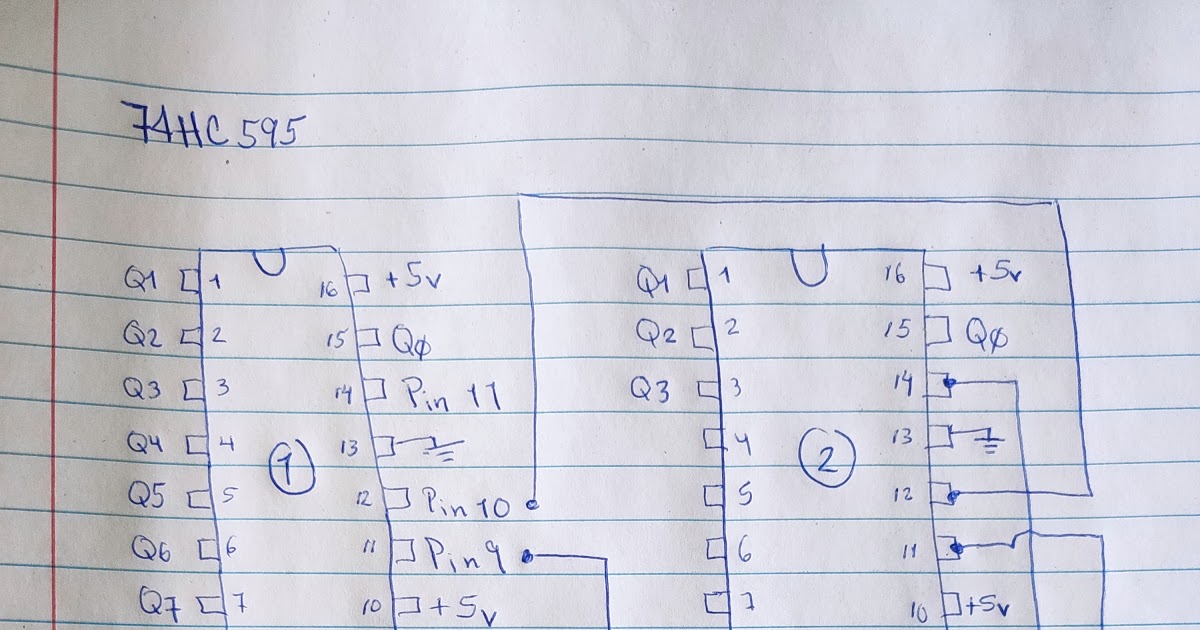 74HC595
Q1 1 16 +5v Q1 1 16 +5v
Q2 2 15 Qø Q2 2 15 Qø
Q3 3 14 Pin 11 Q3 3 14
Q4 4 13 4 13
1 2
Q5 5 12 Pin 10 5 12
Q6 6 11 Pin 9 6 11
Q7 7 10 +5v 7 10 +5v